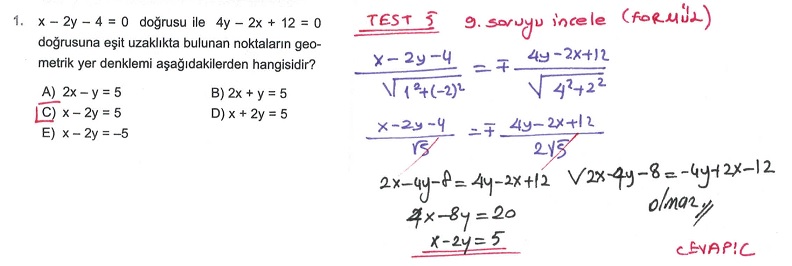 1. x – 2y – 4 = 0 doğrusu ile 4y – 2x + 12 = 0
doğrusuna eşit uzaklıkta bulunan noktaların geo-
metrik yer denklemi aşağıdakilerden hangisidir?
A) 2x – y = 5 B) 2x + y = 5
C) x – 2y = 5 D) x + 2y = 5
E) x – 2y = –5
TEST 5 9. soruyu incele (FORMÜL)
x-2y-4 / √1²+(-2)² = ∓ 4y-2x+12 / √4²+2²
x-2y-4 / √5 = ∓ 4y-2x+12 / 2√5
2x-4y-8=4y-2x+12 V 2x-4y-8=-4y+2x-12
4x-8y=20 olmaz
x-2y=5
CEVAP:C